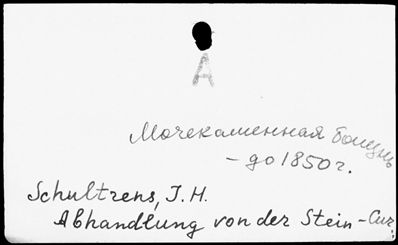 А
Мочекаменная болезнь
- до 1850 г.
Schultzens, J. H.
Abhandlung von der Stein-Cur.